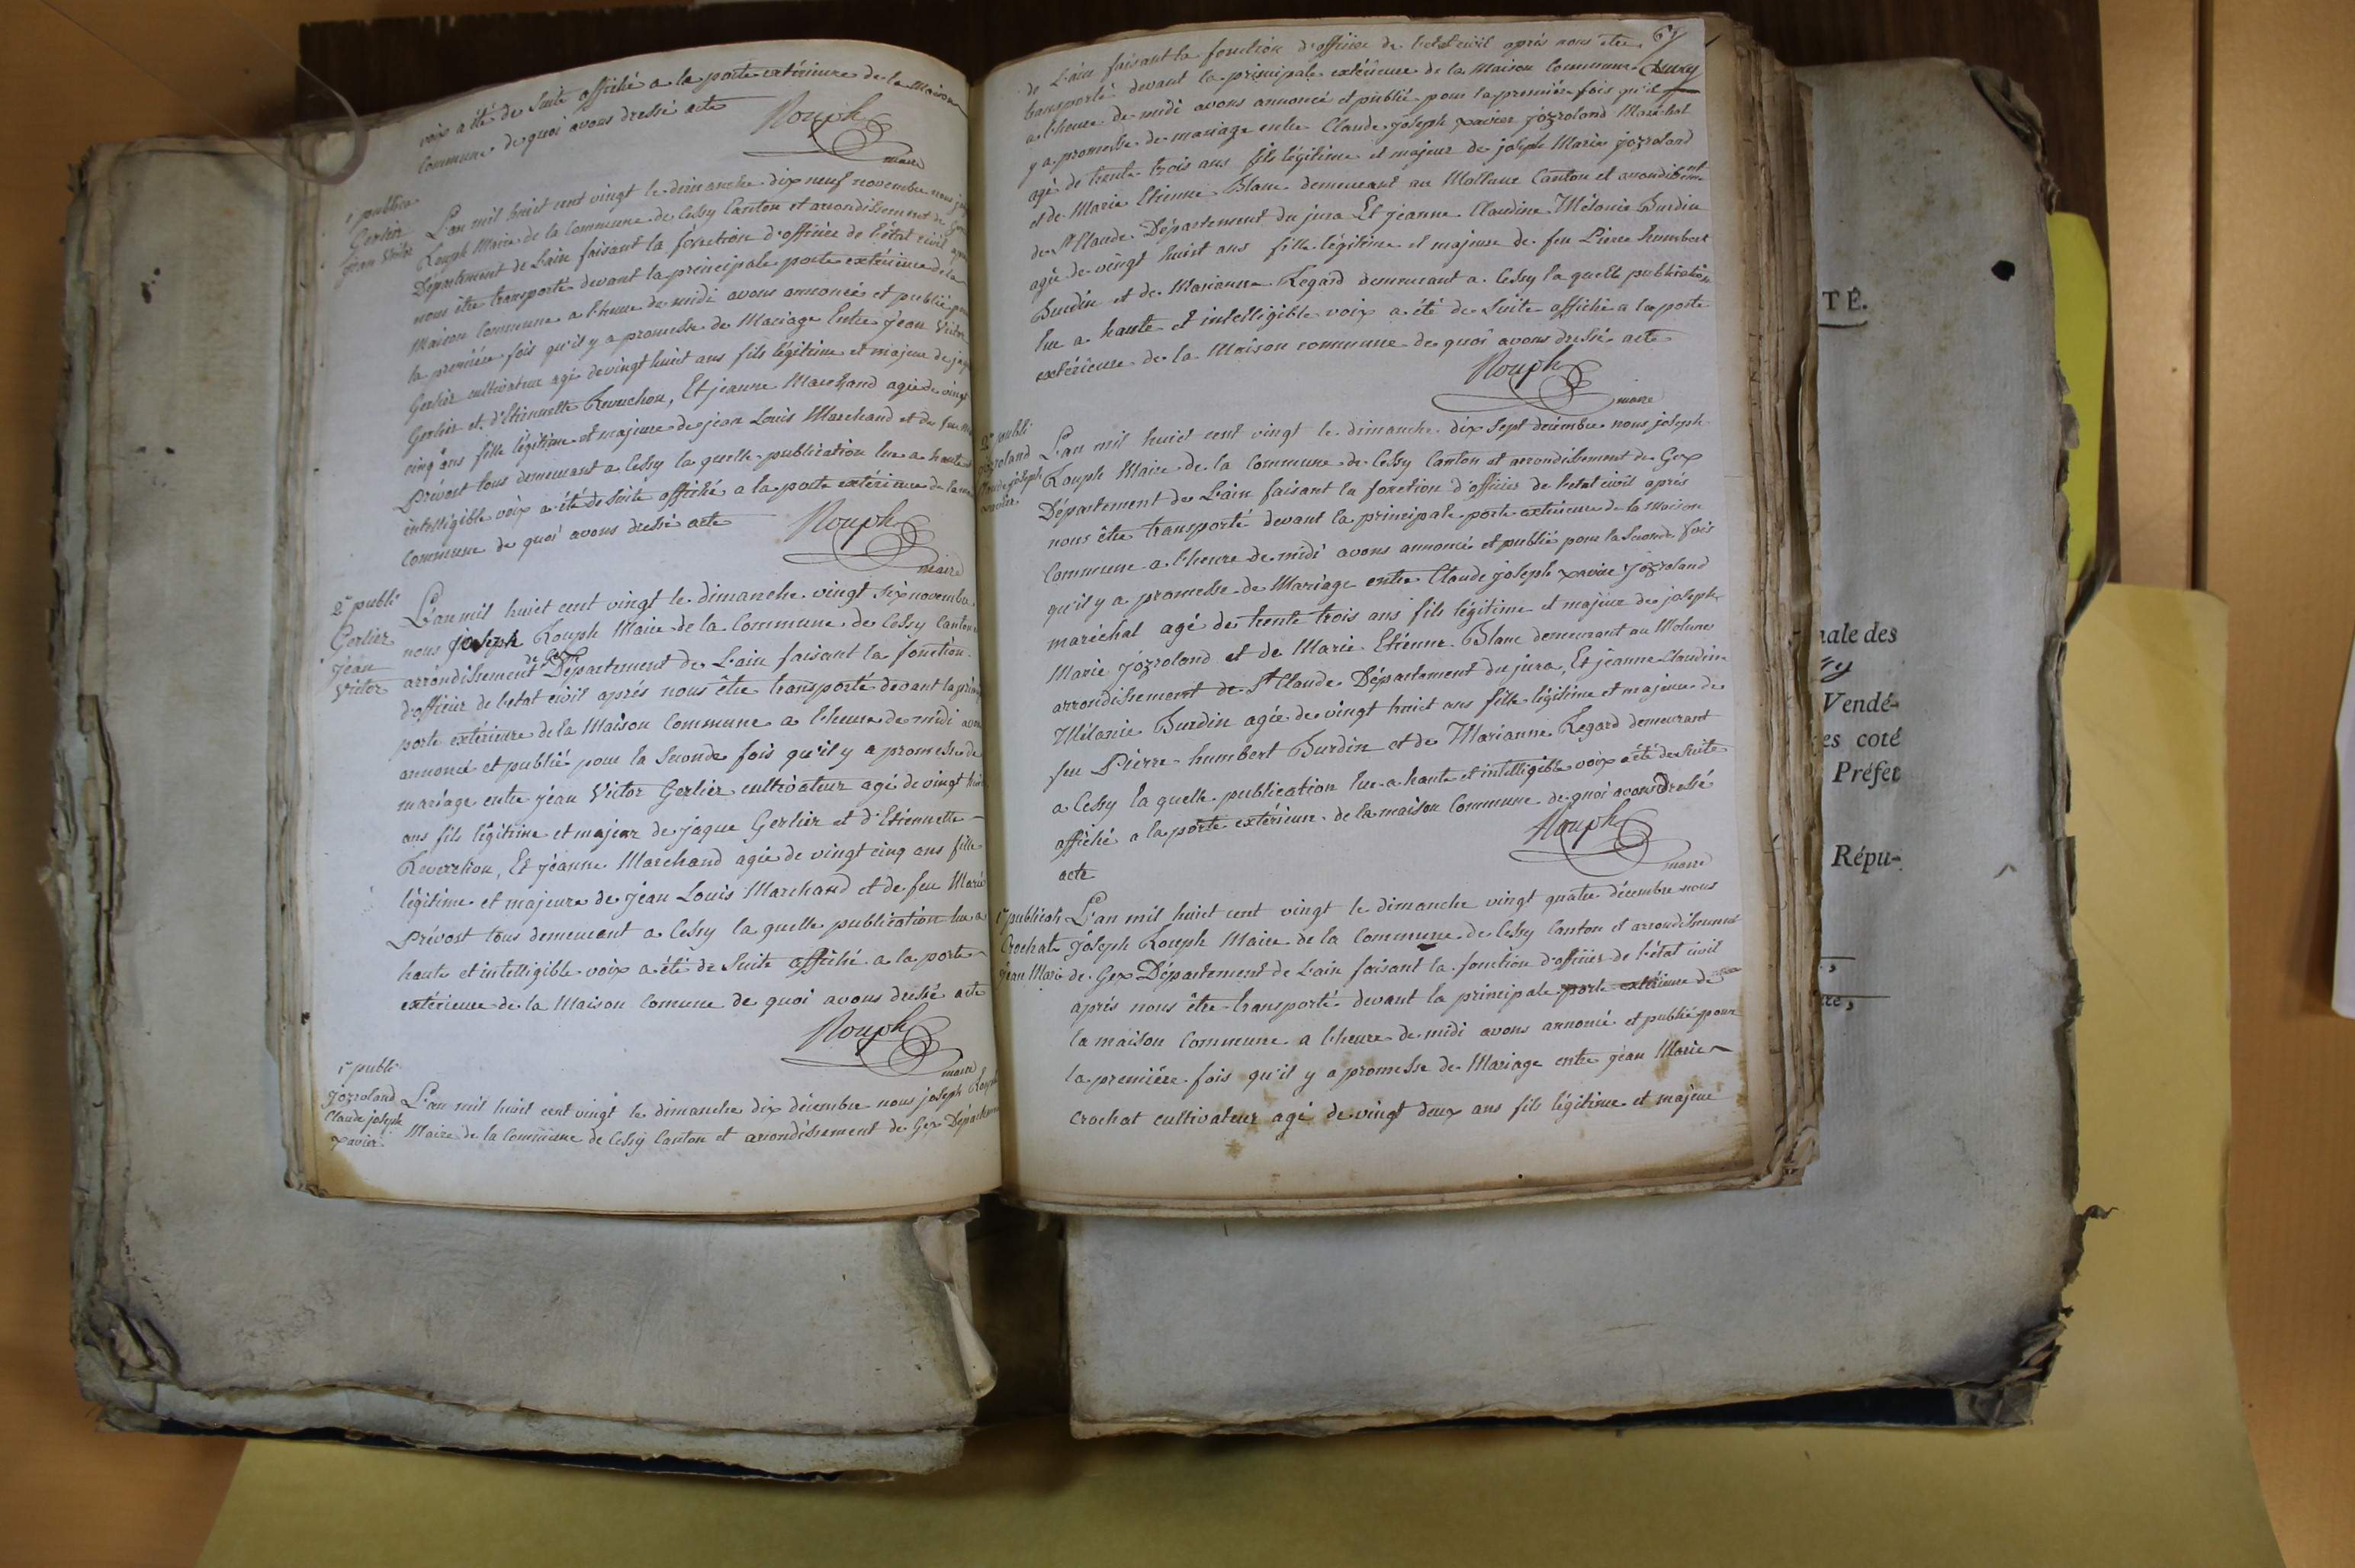 voix a été de Suite affiché a la porte extérieure de la Maison
Commune de quoi avons dressé acte
Rouph
maire
1e publica
Gerlier
jean Victor
L'an mil huit cent vingt le dimanche dix neuf novembre nous
Rouph Maire de la Commune de Cessy Canton et arrondissement de
Département de L'ain faisant la fonction d'officier de l'état civil
nous être transporté devant la principale porte extérieure de la
Maison Commune a l'heure de midi avons annoncé et publié
la première fois qu'il y a promesse de Mariage Entre jean Victor
Gerlier cultivateur agé de vingt huit ans fils légitime et majeur de
Gerlier et d'Etiennette Reverchon, Et jeanne Marchand agée de vingt
cinq ans fille légitime et majeure de jean Louis Marchand et de feu
Prévost tous demeurant a Cessy la quelle publication lue a haute
intelligible voix a été de Suite affiché a la porte extérieure de la
Commune de quoi avons dressé acte
Rouph
maire
2e publi
Gerlier
jean
Victor
L'an mil huict cent vingt le dimanche vingt six novembre
nous joseph Rouph Maire de la Commune de Cessy Canton
arrondissement de Gex Département de L'ain faisant la fonction
d'officier de l'etat civil aprés nous être transporté devant la
porte extérieure de la Maison Commune a l'heure de midi
annoncé et publié pour la Seconde fois qu'il y a promesse de
mariage entre jean Victor Gerlier cultivateur agé de vingt
ans fils légitime et majeur de jaque Gerlier et d'Etiennette
Reverchon, Et jeanne Marchand agée de vingt cinq ans fille
légitime et majeure de jean Louis Marchand et de feu Marie
Prévost tous demeurant a Cessy la quelle publication lue a
haute et intelligible voix a été de Suite affiché a la porte
extérieure de la Maison Comune de quoi avons dressé acte
Rouph
maire
1e publi
jozroland
Claude joseph
xavier
L'an mil huit cent vingt le dimanche dix décembre nous joseph Rouph
Maire de la Commune de Cessy Canton et arrondissement de Gex Département
67
de L'ain faisant la fonction d'officier de l'etat civil aprés nous être
transporté devant la principale extérieure de la Maison Commune
a l'heure de midi avons annoncé et publié pour la premiére fois qu'il
y a promesse de mariage entre Claude joseph xavier jozroland Maréchal
agé de trente trois ans fils légitime et majeur de joseph Marie jozroland
et de Marie Etienne Blanc demeurant au Molune Canton et arrondissent
de St Claude Département du jura Et jeanne Claudine Mélanie Burdin
agée de vingt huit ans fille légitime et majeure de feu Pierre humbert
Burdin et de Marianne Regard demeurant a Cessy la quelle publication
lue a haute et intelligible voix a été de Suite affiché a la porte
extérieure de la Maison commune de quoi avons dressé acte
Rouph
maire
2e publi
jozroland
Claude joseph
xavier
L'an mil huict cent vingt le dimanche dix Sept décembre nous joseph
Rouph Maire de la Commune de Cessy Canton et arrondissement de Gex
Département de L'ain faisant la fonction d'officier de l'etat civil aprés
nous être transporté devant la principale porte extérieure de la Maison
Commune a l'heure de midi avons annoncé et publié pour la Seconde fois
qu'il y a promesse de Mariage entre Claude joseph xavier jozroland
maréchal agé de trente trois ans fils légitime et majeur de joseph
Marie jozroland et de Marie Etienne Blanc demeurant au Molunes
arrondissement de St Claude Département du jura, Et jeanne Claudine
Mélanie Burdin agée de vingt huict ans fille légitime et majeure de
feu Pierre humbert Burdin et de Marianne Regard demeurant
a Cessy la quelle publication lue a haute et intelligible voix a été de Suite
affiché a la porte extérieure de la maison Commune de quoi avons dressé
acte
Rouph
maire
1e publicat
Crochat
jean Marie
L'an mil huict cent vingt le dimanche vingt quatre décembre nous
joseph Rouph Maire de la Commune de Cessy Canton et arrondissement
de Gex Département de L'ain faisant la fonction d'officier de l'état civil
aprés nous être transporté devant la principale porte extérieure de
la maison Commune a l'heure de midi avons annoncé et publié pour
la premiére fois qu'il y a promesse de Mariage entre jean Marie
Crochat cultivateur agé de vingt deux ans fils légitime et majeur
TÉ.
nale des
Vendé-
es coté
Préfet
Répu-